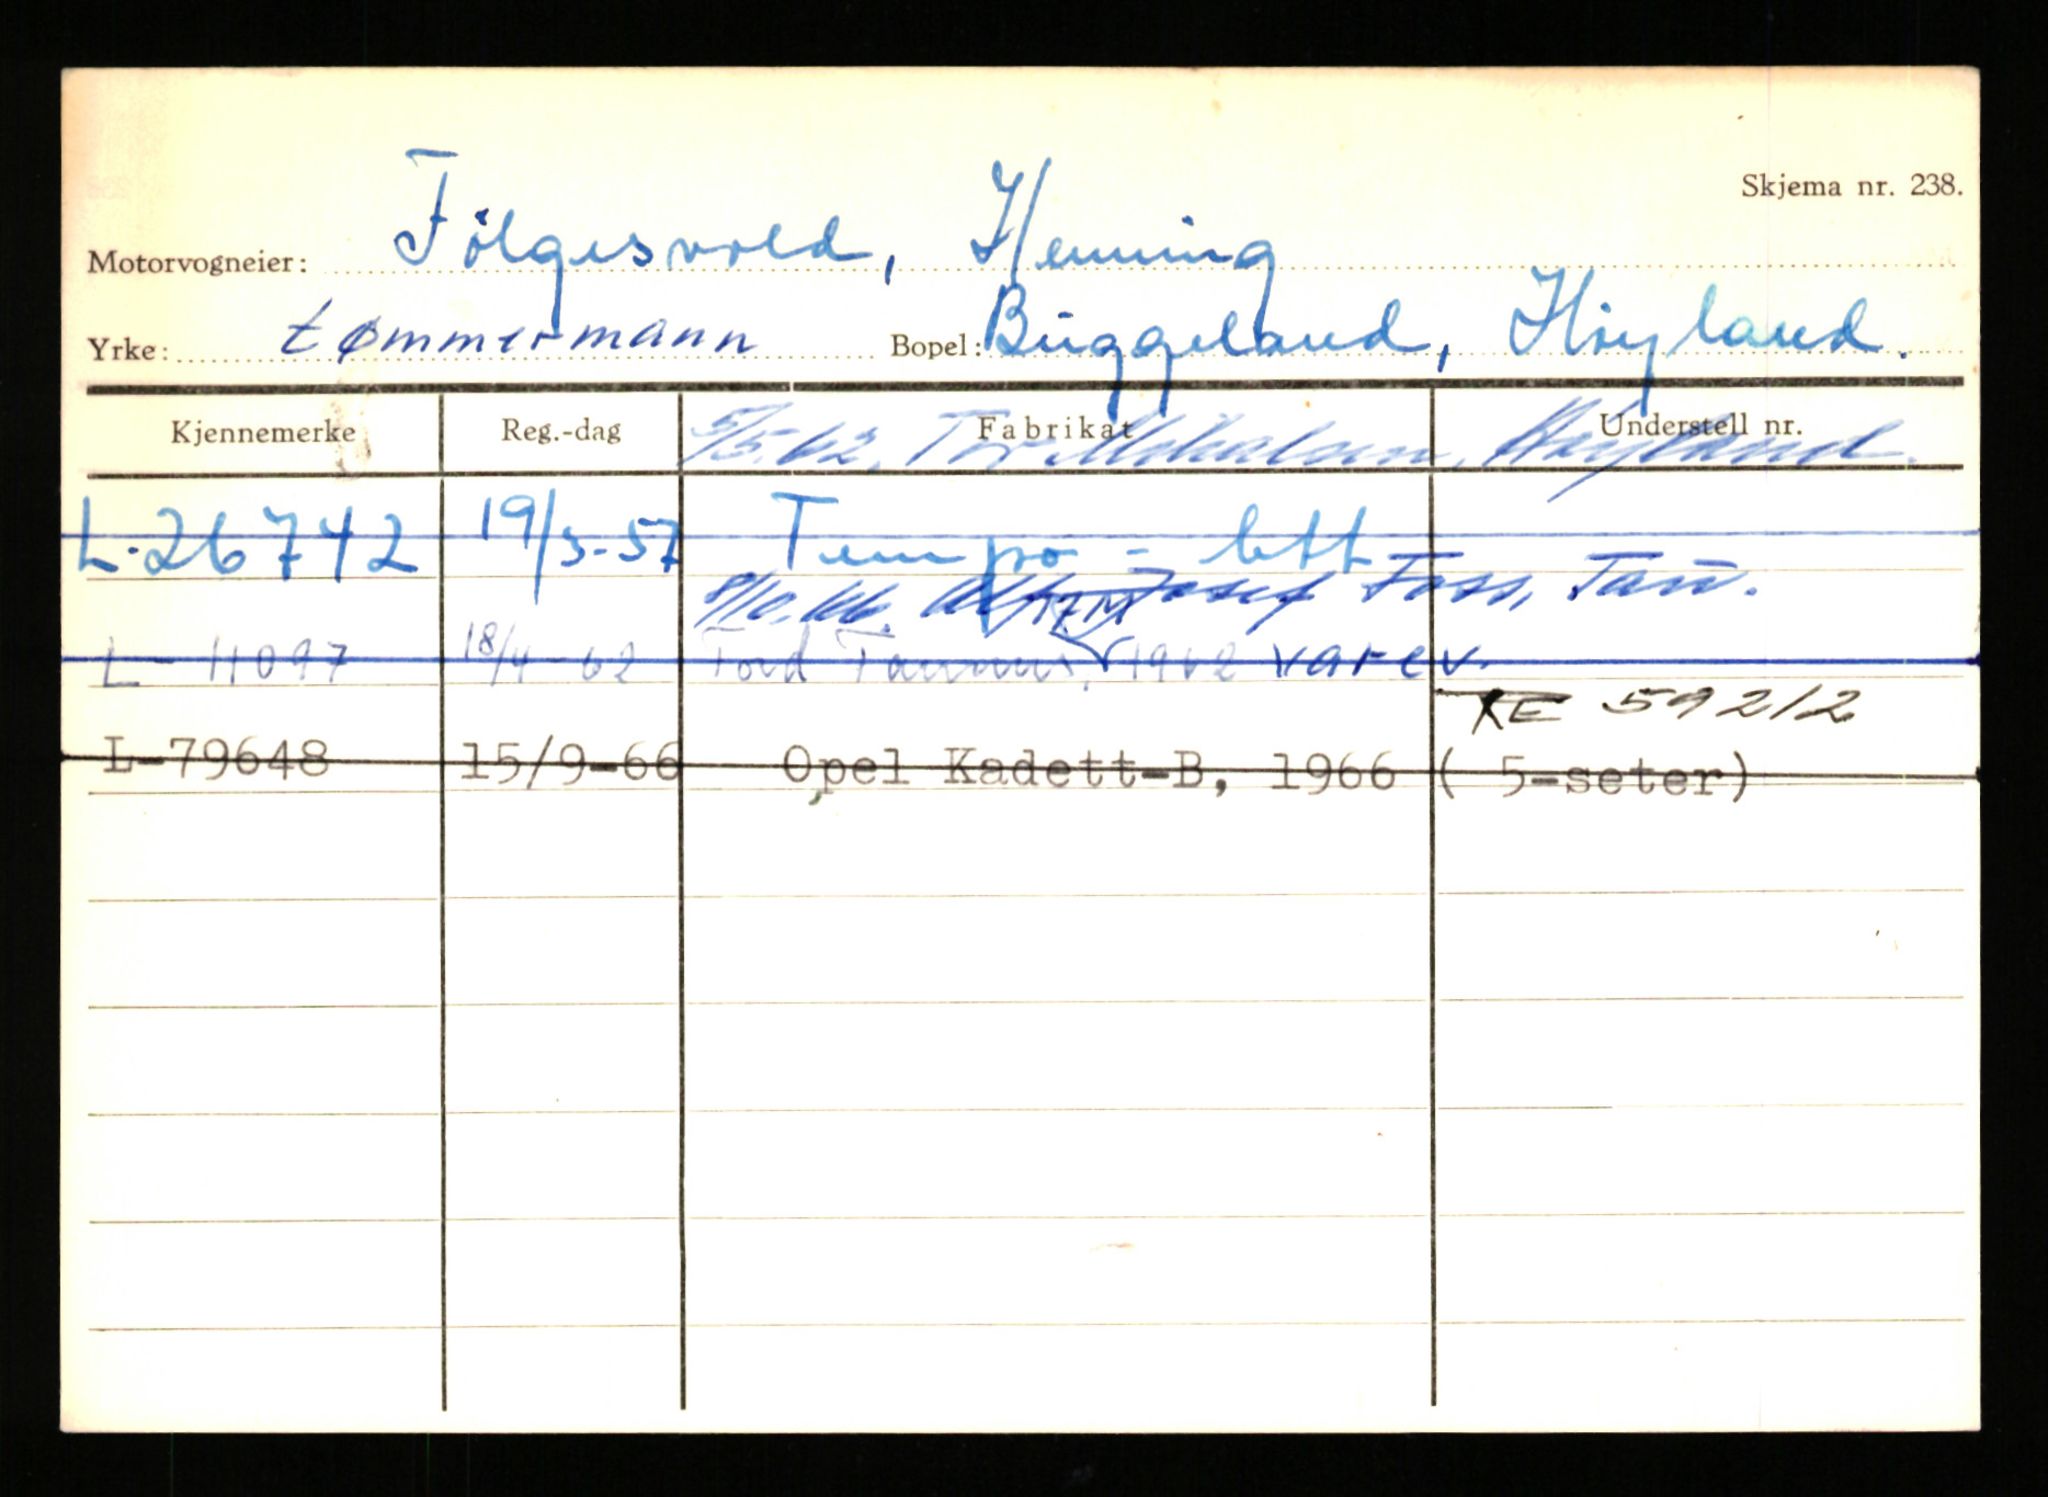 Skjema nr. 238.
Motorvogneier: Fölgesvold, Henning
Yrke: tømmermann Bopel: Büggeland, Höyland.
Kjennemerke Reg.-dag Fabrikat Understell nr.
5/5.62. Tor Mikalsen, Høyland.
L-26742 19/3-57 Tempo - lett
9/10.66. Josef Foss, Tau.
17M
L-11097 18/4-62 Ford Taunus, 1962 varev.
KE 59212
L-79648 15/9-66 Opel Kadett-B, 1966 ( 5-seter)